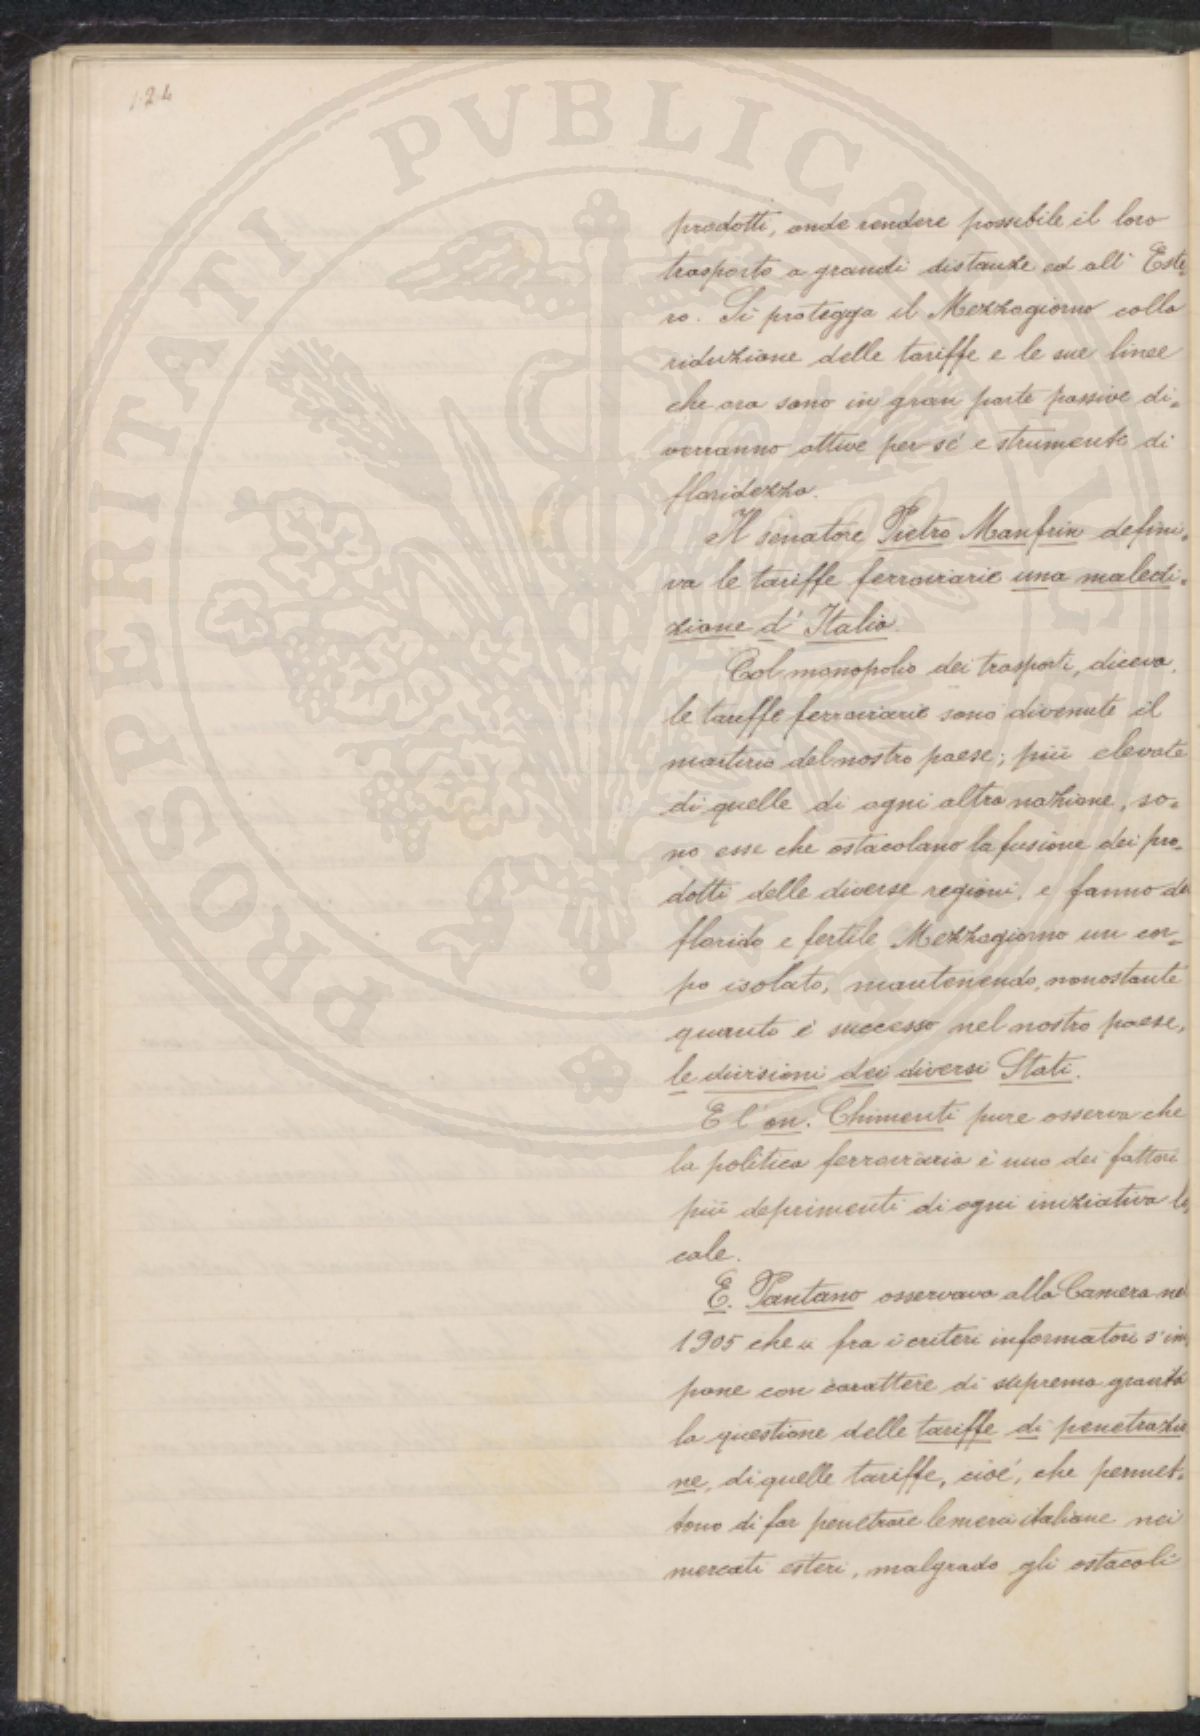 124
PROSPERITATI PVBLICAE
prodotti, onde rendere possibile il loro
trasporto a grandi distanze ed all' Este„
ro. Si protegga il Mezzogiorno colla
riduzione delle tariffe e le sue linee
che ora sono in gran parte passive di„
verranno attive per sè e strumento di
floridezza.
Il senatore Pietro Manfrin defini„
va le tariffe ferroviarie una maledi„
zione d' Italia.
Col monopolio dei trasporti, diceva,
le tariffe ferroviarie sono divenute il
martirio del nostro paese; più elevate
di quelle di ogni altra nazione, so„
no esse che ostacolano la fusione dei pro„
dotti delle diverse regioni, e fanno del
florido e fertile Mezzogiorno un cor„
po isolato, mantenendo, nonostante
quanto è successo nel nostro paese,
le divisioni dei diversi Stati.
E l' on. Chimenti pure osserva che
la politica ferroviaria è uno dei fattori
più deprimenti di ogni iniziativa lo
cale.
E. Pantano osservava alla Camera nel
1905 che « fra i criteri informatori s' im„
pone con carattere di suprema gravità
la questione delle tariffe di penetrazio
ne, di quelle tariffe, cioè, che permet„
tono di far penetrare le merci italiane nei
mercati esteri, malgrado gli ostacoli